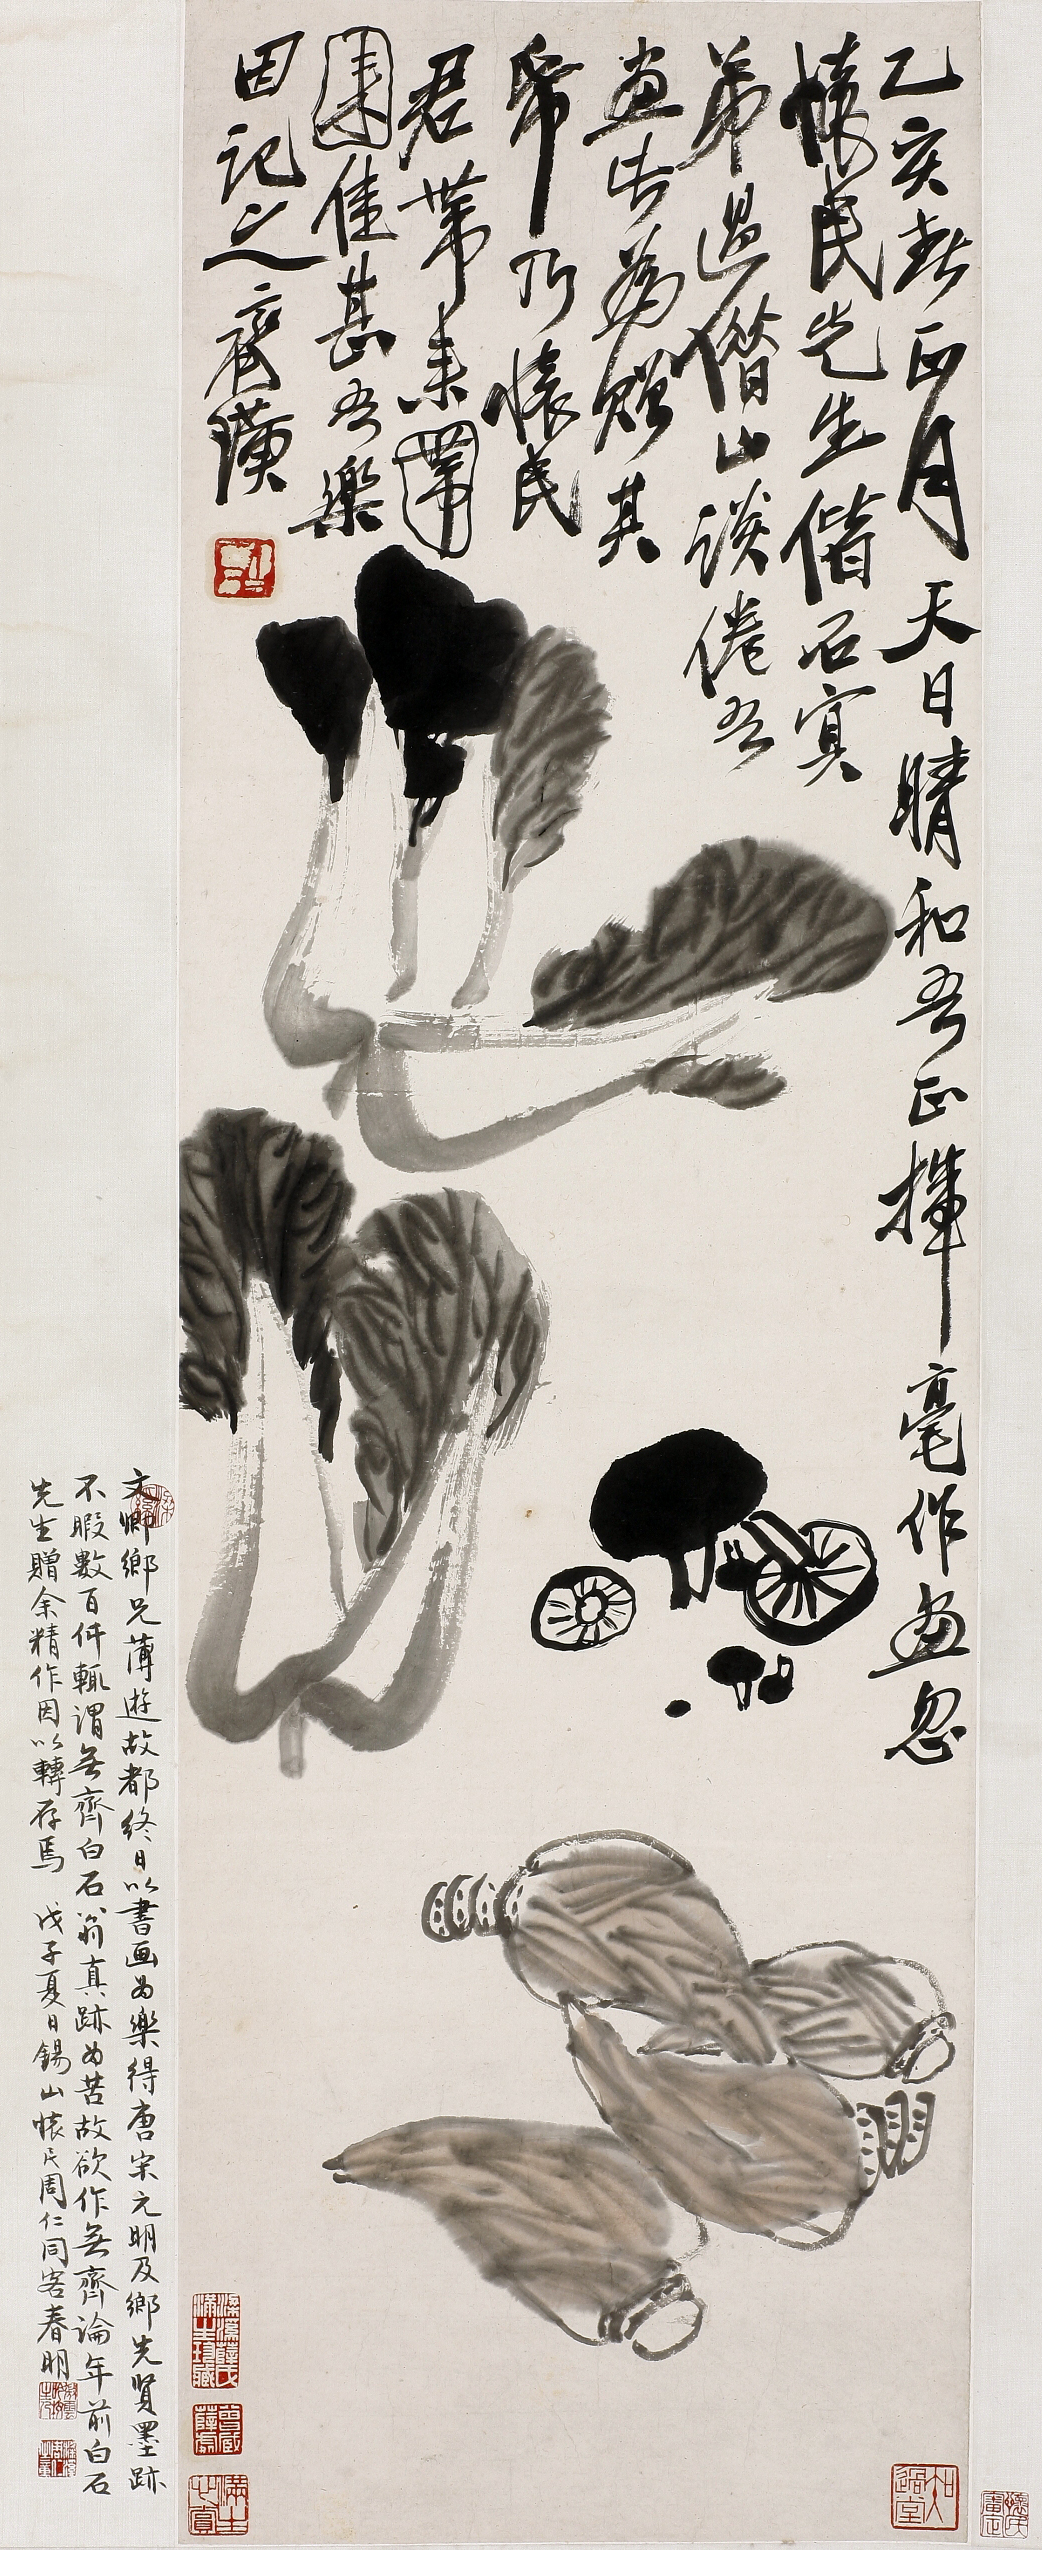 乙亥春正月天日晴和吾正揮毫作画忽
懷民先生偕石冥
弟過借山談倦吾
画此為贈其
紙乃懷民
君帶来帶
圍佳甚吾樂
因記之齊璜
文卿鄉兄薄遊故都終日以書画為樂得唐宋元明及鄉先賢墨跡
不暇數百件輒謂無齊白石翁真跡為苦故欲作無齊論年前白石
先生贈余精作因以轉存焉 戊子夏日錫山懷民周仁同客春明
知人過堂